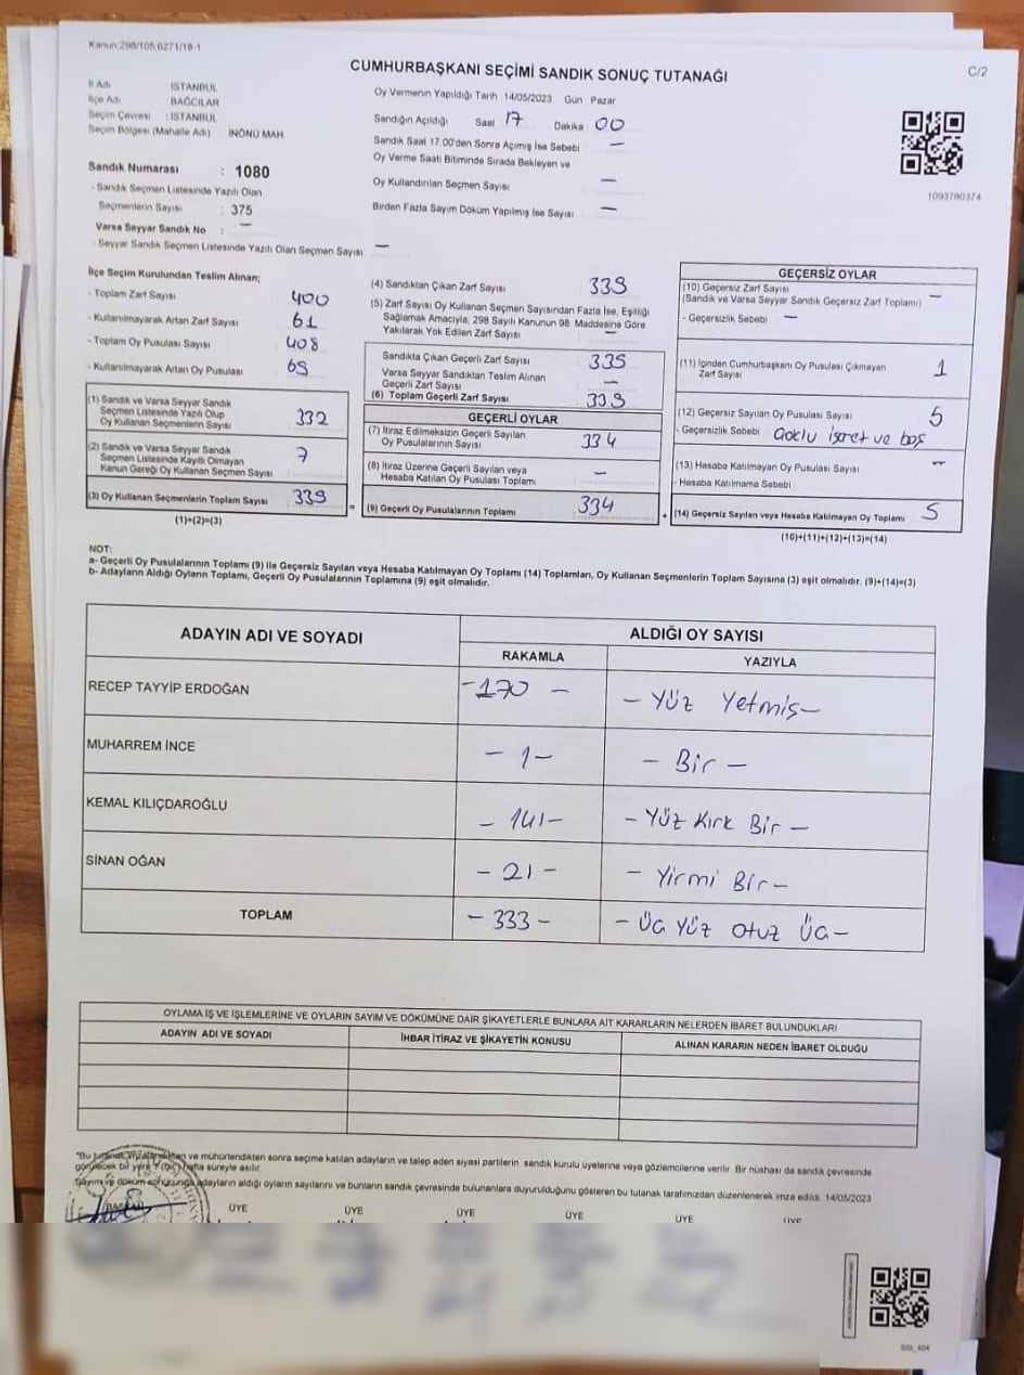 Kanun:298/105,6271/18-1
C/2
CUMHURBAŞKANI SEÇİMİ SANDIK SONUÇ TUTANAĞI
İl Adı : İSTANBUL
İlçe Adı : BAĞCILAR
Seçim Çevresi : İSTANBUL
Seçim Bölgesi (Mahalle Adı) İNÖNÜ MAH.
Sandık Numarası : 1080
- Sandık Seçmen Listesinde Yazılı Olan
Seçmenlerin Sayısı : 375
Varsa Seyyar Sandık No : —
- Seyyar Sandık Seçmen Listesinde Yazılı Olan Seçmen Sayısı —
Oy Vermenin Yapıldığı Tarih 14/05/2023 Gün Pazar
Sandığın Açıldığı Saat 17 Dakika 00
Sandık Saat 17.00'den Sonra Açımış İse Sebebi —
Oy Verme Saati Bitiminde Sırada Bekleyen ve
Oy Kullandırılan Seçmen Sayısı —
Birden Fazla Sayım Döküm Yapılmış İse Sayısı —
1093780374
İlçe Seçim Kurulundan Teslim Alınan;
- Toplam Zarf Sayısı 400
- Kullanılmayarak Artan Zarf Sayısı 61
- Toplam Oy Pusulası Sayısı 408
- Kullanılmayarak Artan Oy Pusulası 69
(1) Sandık ve Varsa Seyyar Sandık
Seçmen Listesinde Yazılı Olup
Oy Kullanan Seçmenlerin Sayısı 332
(2) Sandık ve Varsa Seyyar Sandık
Seçmen Listesinde Kayıtlı Olmayan
Kanun Gereği Oy Kullanan Seçmen Sayısı 7
(3) Oy Kullanan Seçmenlerin Toplam Sayısı 339
(1)+(2)=(3)
(4) Sandıktan Çıkan Zarf Sayısı 339
(5) Zarf Sayısı Oy Kullanan Seçmen Sayısından Fazla İse, Eşitliği
Sağlamak Amacıyla, 298 Sayılı Kanunun 98. Maddesine Göre
Yakılarak Yok Edilen Zarf Sayısı —
Sandıkta Çıkan Geçerli Zarf Sayısı 339
Varsa Seyyar Sandıktan Teslim Alınan
Geçerli Zarf Sayısı —
(6) Toplam Geçerli Zarf Sayısı 339
GEÇERLİ OYLAR
(7) İtiraz Edilmeksizin Geçerli Sayılan
Oy Pusulalarının Sayısı 334
(8) İtiraz Üzerine Geçerli Sayılan veya
Hesaba Katılan Oy Pusulası Toplamı —
(9) Geçerli Oy Pusulalarının Toplamı 334
GEÇERSİZ OYLAR
(10) Geçersiz Zarf Sayısı
(Sandık ve Varsa Seyyar Sandık Geçersiz Zarf Toplamı) —
- Geçersizlik Sebebi —
(11) İçinden Cumhurbaşkanı Oy Pusulası Çıkmayan
Zarf Sayısı 1
(12) Geçersiz Sayılan Oy Pusulası Sayısı 5
- Geçersizlik Sebebi Çoklu işaret ve boş
(13) Hesaba Katılmayan Oy Pusulası Sayısı —
- Hesaba Katılmama Sebebi
(14) Geçersiz Sayılan veya Hesaba Katılmayan Oy Toplamı 5
(10)+(11)+(12)+(13)=(14)
NOT:
a- Geçerli Oy Pusulalarının Toplamı (9) ile Geçersiz Sayılan veya Hesaba Katılmayan Oy Toplamı (14) Toplamları, Oy Kullanan Seçmenlerin Toplam Sayısına (3) eşit olmalıdır. (9)+(14)=(3)
b- Adayların Aldığı Oyların Toplamı, Geçerli Oy Pusulalarının Toplamına (9) eşit olmalıdır.
ADAYIN ADI VE SOYADI
ALDIĞI OY SAYISI
RAKAMLA YAZIYLA
RECEP TAYYİP ERDOĞAN -170 - - Yüz Yetmiş -
MUHARREM İNCE - 1 - - Bir -
KEMAL KILIÇDAROĞLU - 141 - - Yüz Kırk Bir -
SİNAN OĞAN - 21 - - Yirmi Bir -
TOPLAM - 333 - - Üç Yüz Otuz Üç -
OYLAMA İŞ VE İŞLEMLERİNE VE OYLARIN SAYIM VE DÖKÜMÜNE DAİR ŞİKAYETLERLE BUNLARA AİT KARARLARIN NELERDEN İBARET BULUNDUKLARI
ADAYIN ADI VE SOYADI İHBAR İTİRAZ VE ŞİKAYETİN KONUSU ALINAN KARARIN NEDEN İBARET OLDUĞU
"Bu tutanak imzalandıktan ve mühürlendikten sonra seçime katılan adayların ve talep eden siyasi partilerin, sandık kurulu üyelerine veya gözlemcilerine verilir. Bir nüshası da sandık çevresinde
görülecek bir yere 7 (bir) hafta süreyle asılır.
Sayım ve döküm sonucunda adayların aldığı oyların sayılarını ve bunların sandık çevresinde bulunanlara duyurulduğunu gösteren bu tutanak tarafımızdan düzenlenerek imza edildi. 14/05/2023
BAŞKAN ÜYE ÜYE ÜYE ÜYE ÜYE ÜYE